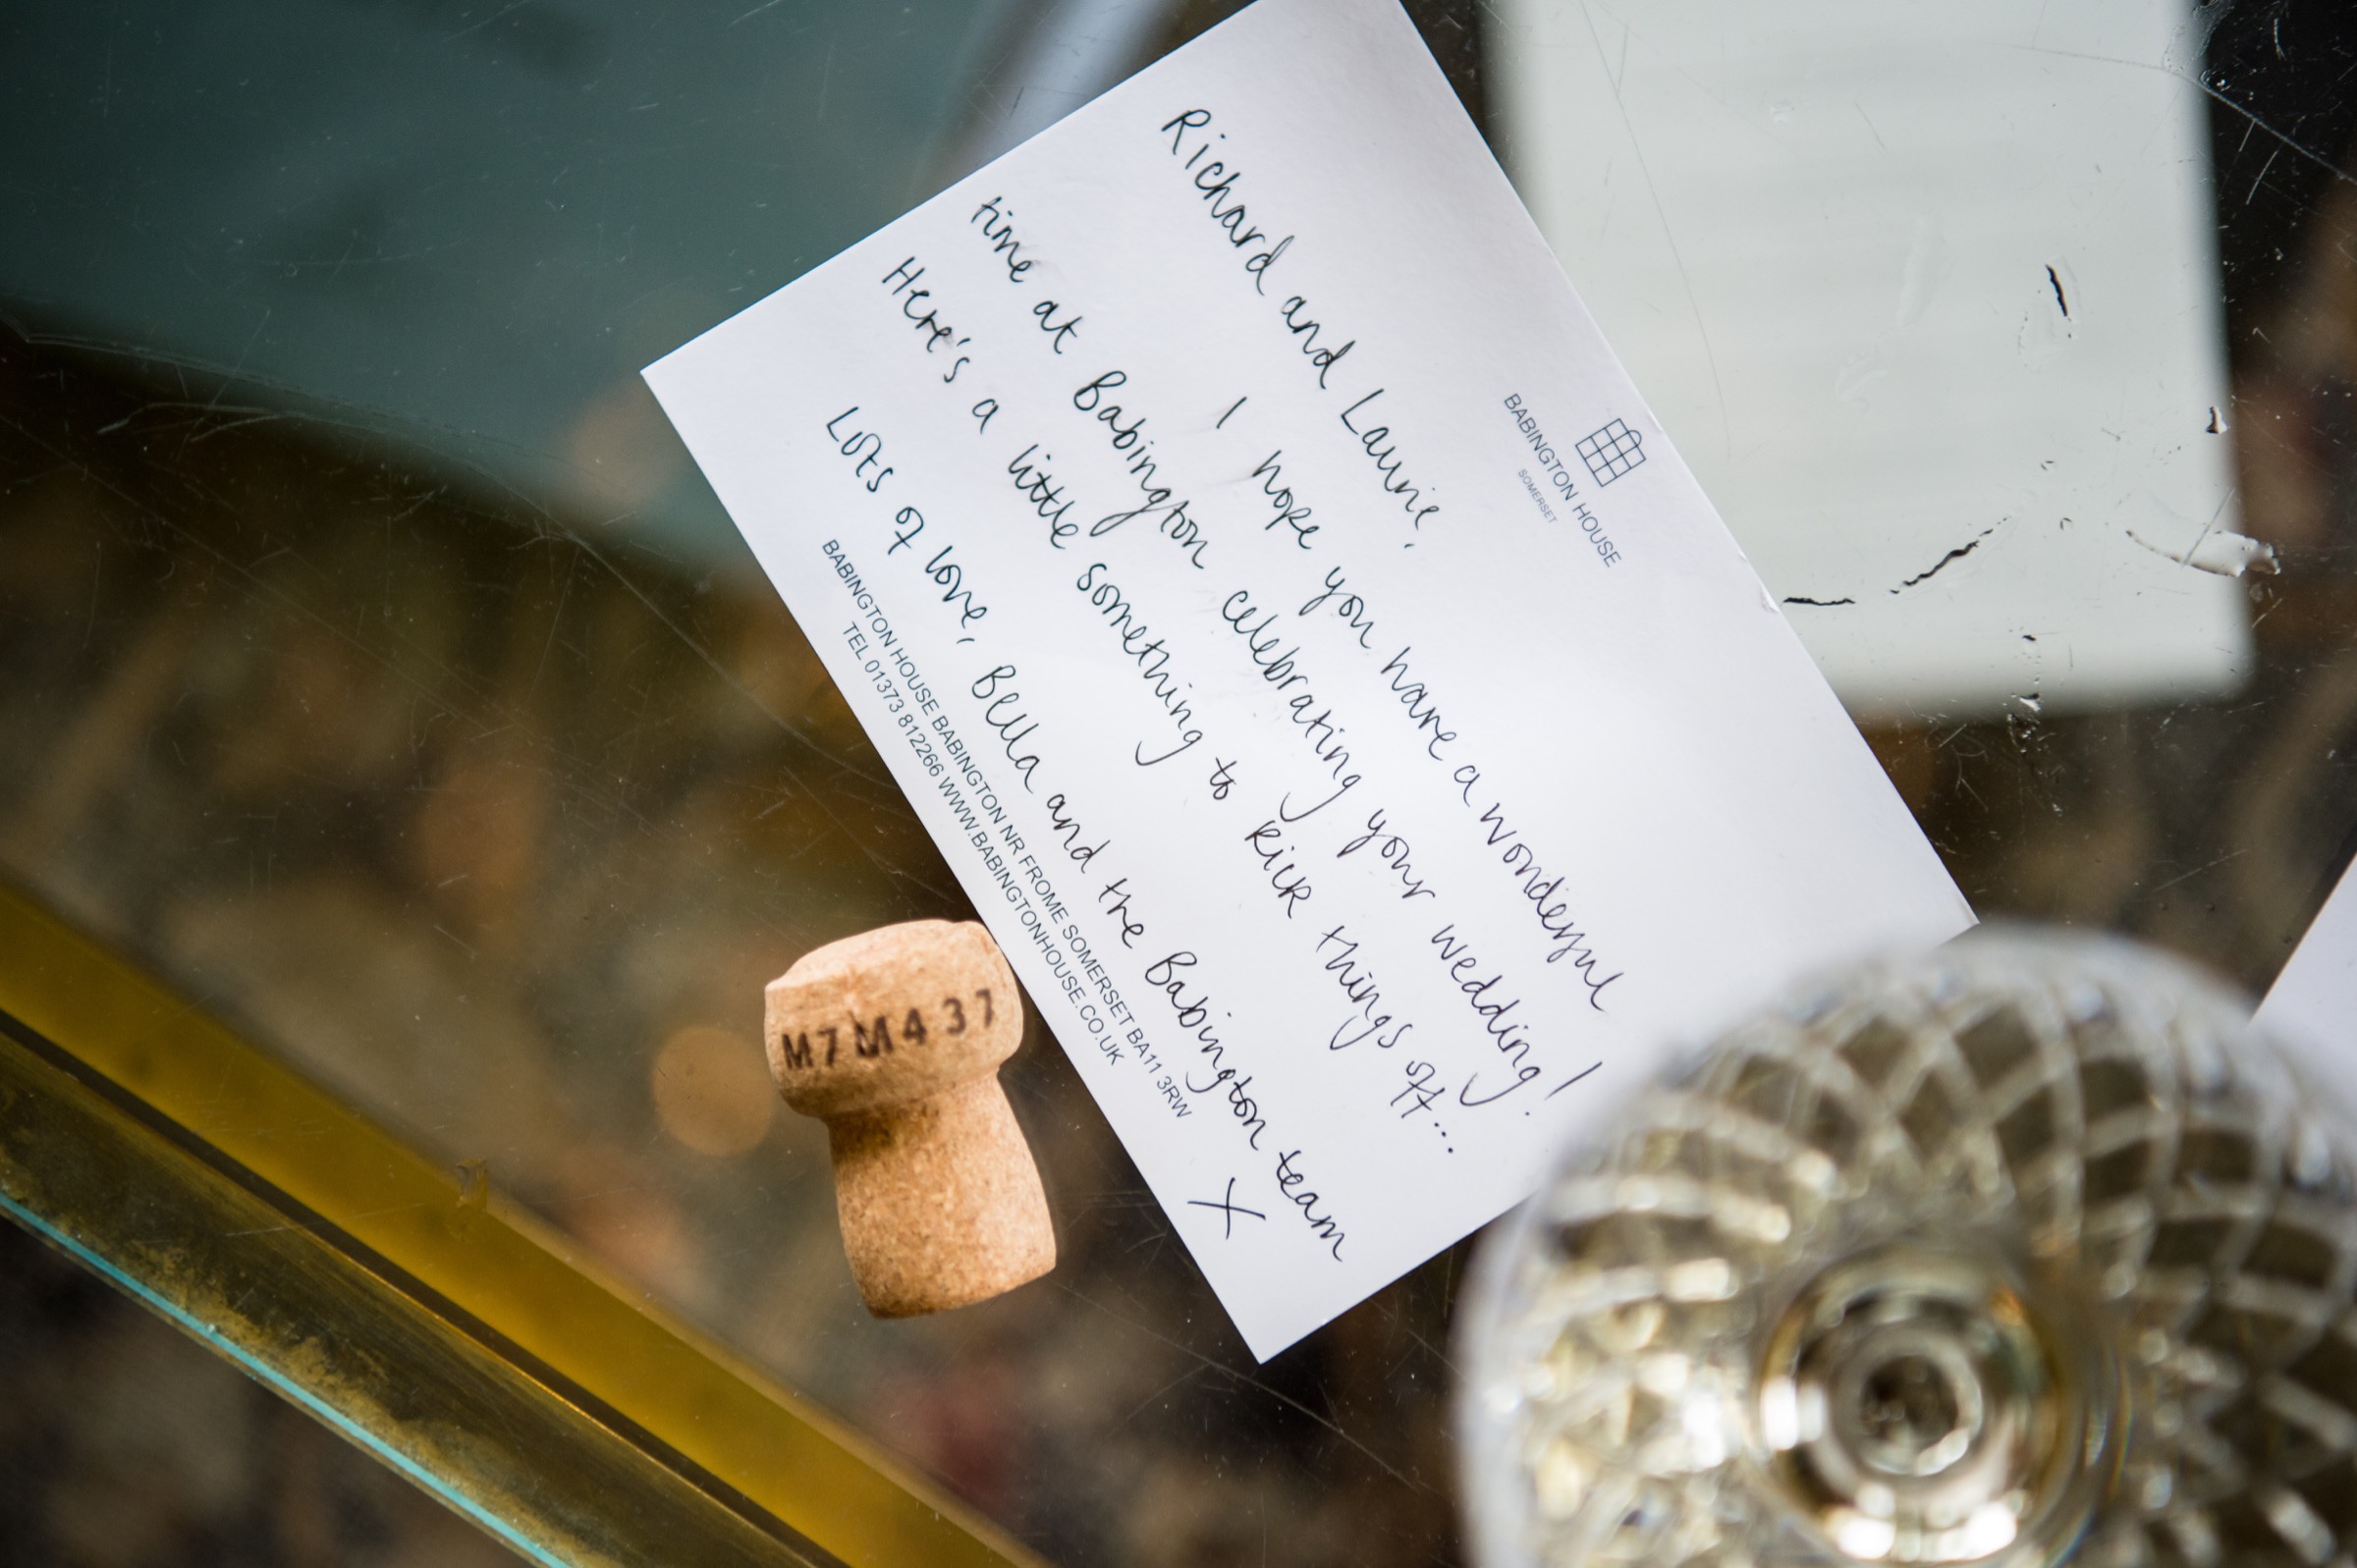 BABINGTON HOUSE
SOMERSET
Richard and Laurie,
I hope you have a wonderful
time at Babington celebrating your wedding!
Here's a little something to kick things off...
Lots of love, Bella and the Babington team
X
BABINGTON HOUSE BABINGTON NR FROME SOMERSET BA11 3RW
TEL 01373 812266 WWW.BABINGTONHOUSE.CO.UK
M7M437